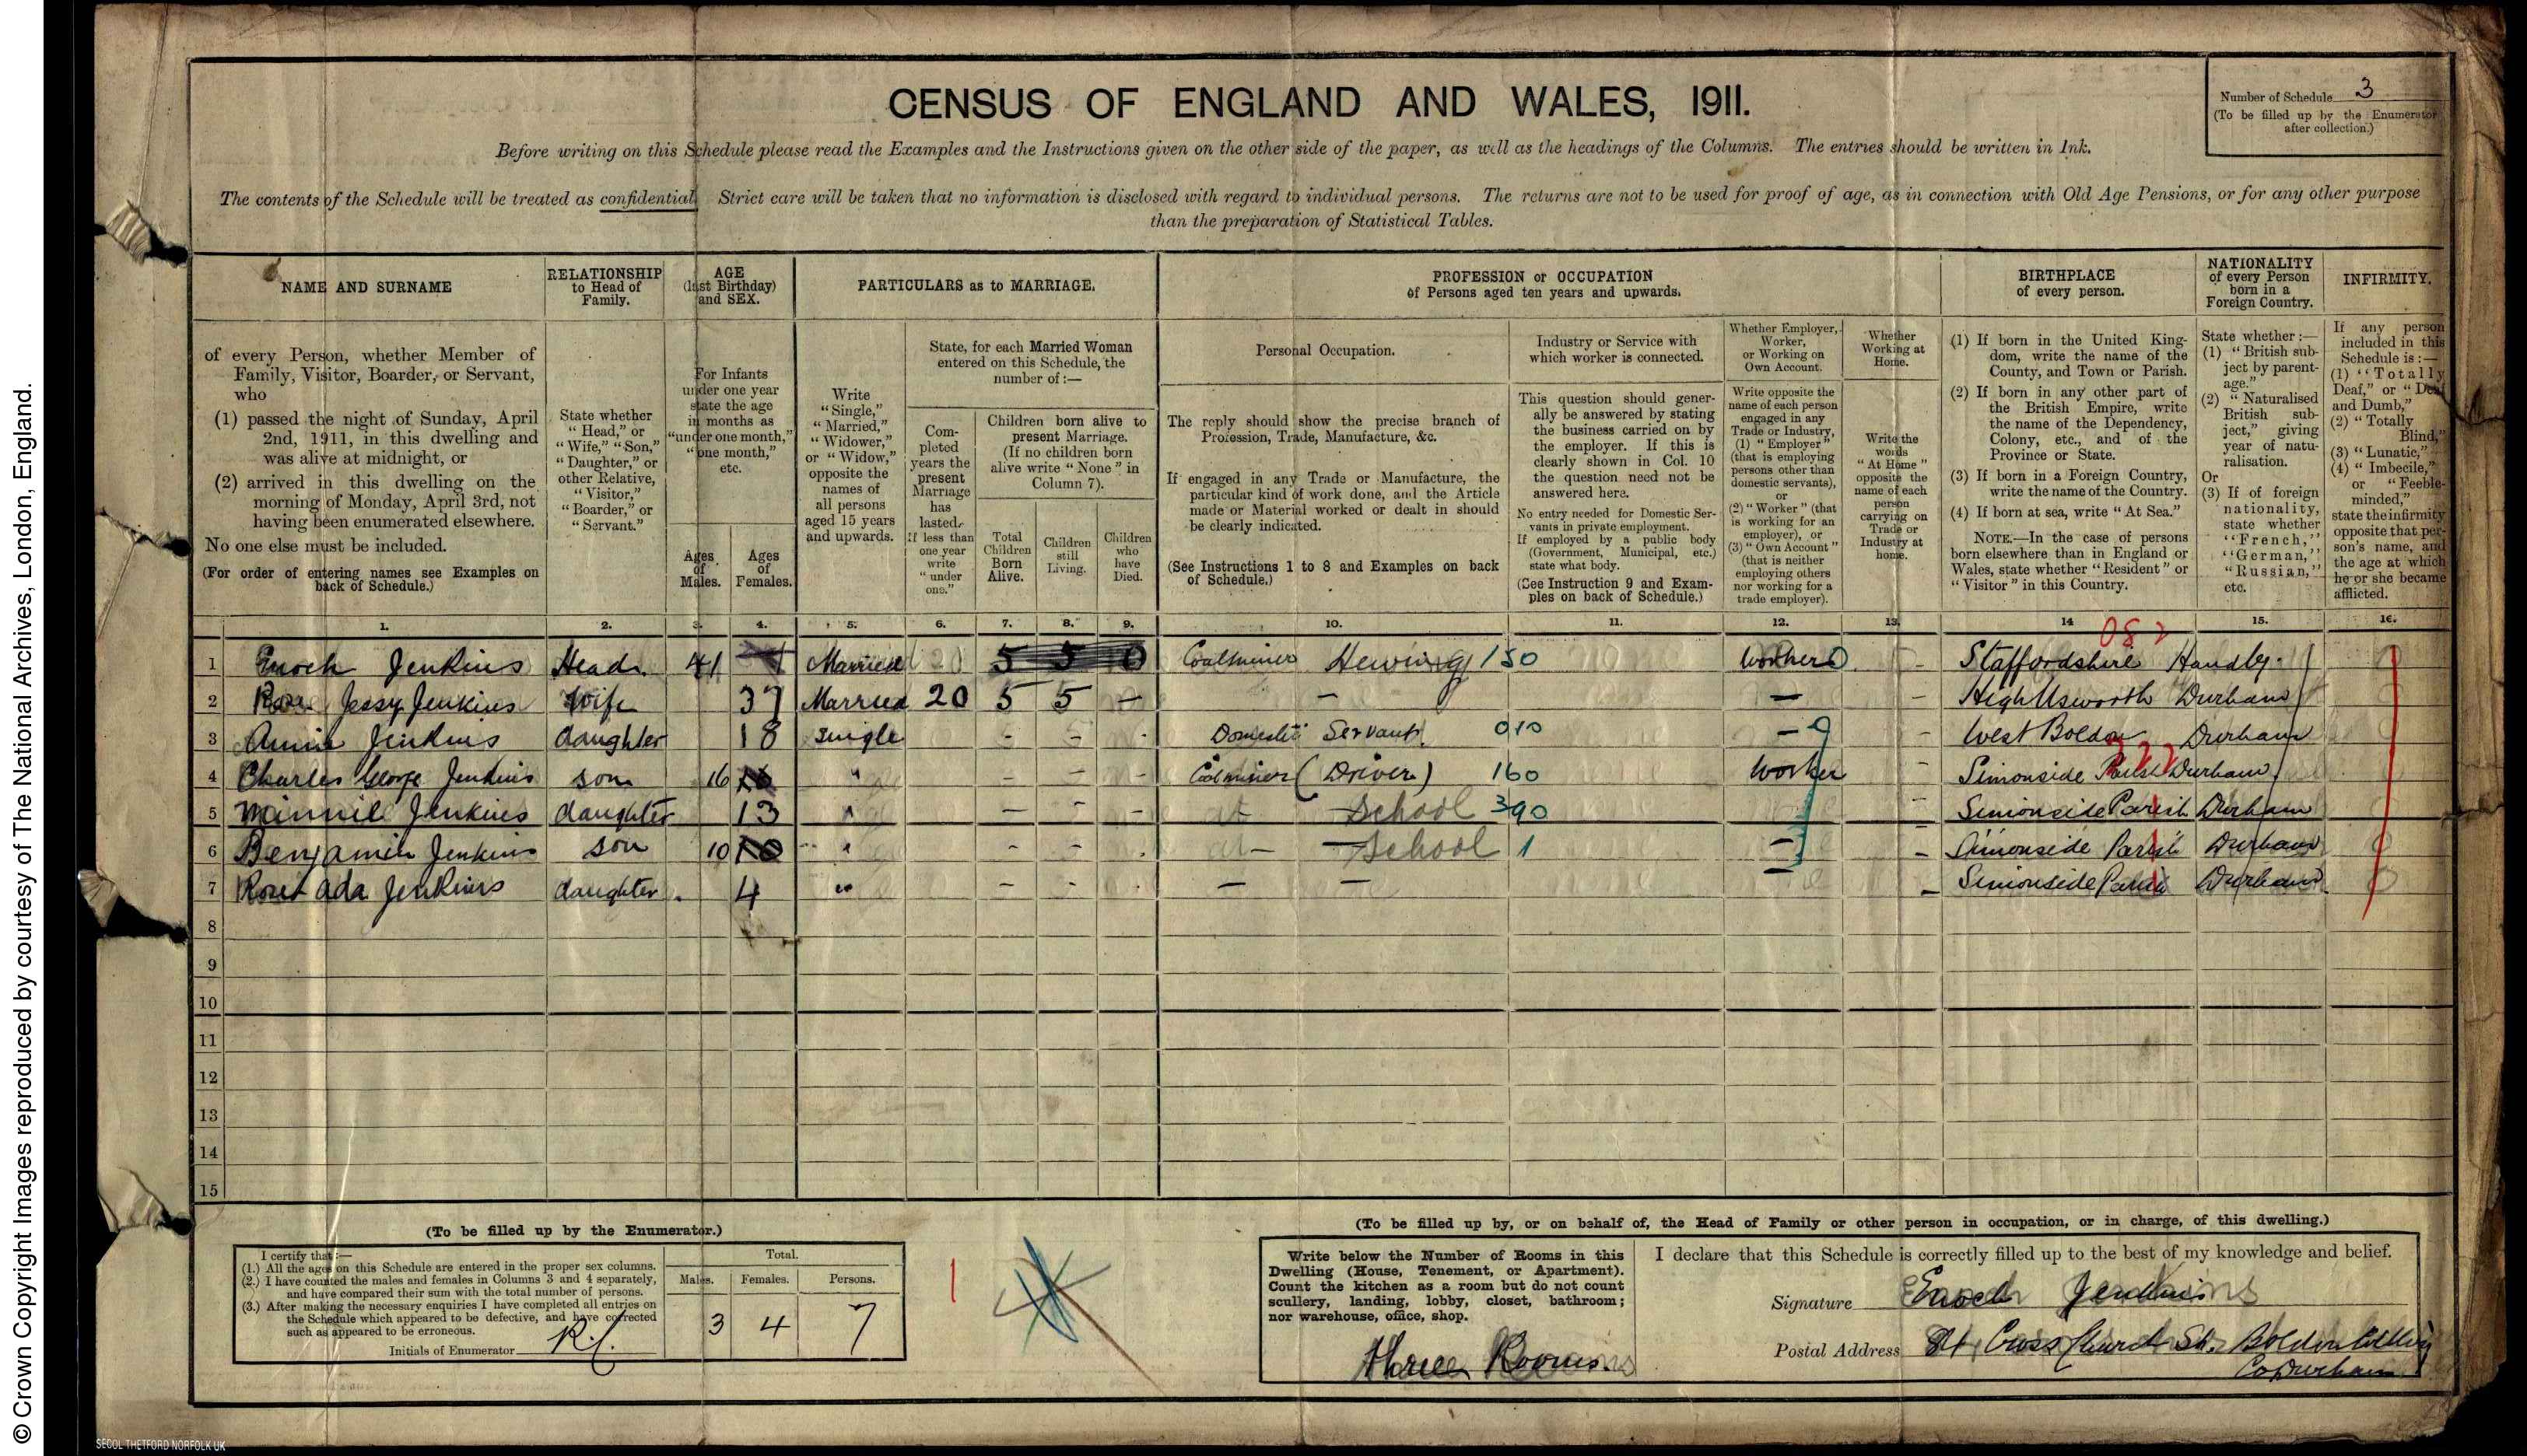 © Crown Copyright Images reproduced by courtesy of The National Archives, London, England.
CENSUS OF ENGLAND AND WALES, 1911.
Number of Schedule 3
(To be filled up by the Enumerator
after collection.)
Before writing on this Schedule please read the Examples and the Instructions given on the other side of the paper, as well as the headings of the Columns. The entries should be written in Ink.
The contents of the Schedule will be treated as confidential. Strict care will be taken that no information is disclosed with regard to individual persons. The returns are not to be used for proof of age, as in connection with Old Age Pensions, or for any other purpose
than the preparation of Statistical Tables.
NAME AND SURNAME
of every Person, whether Member of
Family, Visitor, Boarder, or Servant,
who
(1) passed the night of Sunday, April
2nd, 1911, in this dwelling and
was alive at midnight, or
(2) arrived in this dwelling on the
morning of Monday, April 3rd, not
having been enumerated elsewhere.
No one else must be included.
(For order of entering names see Examples on
back of Schedule.)
RELATIONSHIP
to Head of
Family.
State whether
"Head," or
"Wife," "Son,"
"Daughter," or
other Relative,
"Visitor,"
"Boarder," or
"Servant."
AGE
(last Birthday)
and SEX.
For Infants
under one year
state the age
in months as
"under one month,"
"one month,"
etc.
Ages
of
Males.
Ages
of
Females.
PARTICULARS as to MARRIAGE.
Write
"Single,"
"Married,"
"Widower,"
or "Widow,"
opposite the
names of
all persons
aged 15 years
and upwards.
State, for each Married Woman
entered on this Schedule, the
number of :—
Com-
pleted
years the
present
Marriage
has
lasted.
If less than
one year
write
"under
one."
Children born alive to
present Marriage.
(If no children born
alive write "None" in
Column 7).
Total
Children
Born
Alive.
Children
still
Living.
Children
who
have
Died.
PROFESSION or OCCUPATION
of Persons aged ten years and upwards.
Personal Occupation.
The reply should show the precise branch of
Profession, Trade, Manufacture, &c.
If engaged in any Trade or Manufacture, the
particular kind of work done, and the Article
made or Material worked or dealt in should
be clearly indicated.
(See Instructions 1 to 8 and Examples on back
of Schedule.)
Industry or Service with
which worker is connected.
This question should gener-
ally be answered by stating
the business carried on by
the employer. If this is
clearly shown in Col. 10
the question need not be
answered here.
No entry needed for Domestic Ser-
vants in private employment.
If employed by a public body
(Government, Municipal, etc.)
state what body.
(See Instruction 9 and Exam-
ples on back of Schedule.)
Whether Employer,
Worker,
or Working on
Own Account.
Write opposite the
name of each person
engaged in any
Trade or Industry,
(1) "Employer"
(that is employing
persons other than
domestic servants),
or
(2) "Worker" (that
is working for an
employer), or
(3) "Own Account"
(that is neither
employing others
nor working for a
trade employer).
Whether
Working at
Home.
Write the
words
"At Home"
opposite the
name of each
person
carrying on
Trade or
Industry at
home.
BIRTHPLACE
of every person.
(1) If born in the United King-
dom, write the name of the
County, and Town or Parish.
(2) If born in any other part of
the British Empire, write
the name of the Dependency,
Colony, etc., and of the
Province or State.
(3) If born in a Foreign Country,
write the name of the Country.
(4) If born at sea, write "At Sea."
NOTE.—In the case of persons
born elsewhere than in England or
Wales, state whether "Resident" or
"Visitor" in this Country.
NATIONALITY
of every Person
born in a
Foreign Country.
State whether :—
(1) "British sub-
ject by parent-
age."
(2) "Naturalised
British sub-
ject," giving
year of natu-
ralisation.
Or
(3) If of foreign
nationality,
state whether
"French,"
"German,"
"Russian,"
etc.
INFIRMITY.
If any person
included in this
Schedule is :—
(1) "Totally
Deaf," or "Deaf
and Dumb,"
(2) "Totally
Blind,"
(3) "Lunatic,"
(4) "Imbecile,"
or "Feeble-
minded,"
state the infirmity
opposite that per-
son's name, and
the age at which
he or she became
afflicted.
1. 2. 3. 4. 5. 6. 7. 8. 9. 10. 11. 12. 13. 14 15. 16.
1 Enoch Jenkins Head 41 Married 20 5 5 0 Coalminer Hewing 150 Worker Staffordshire Handley
2 Rose Jessy Jenkins Wife 37 Married 20 5 5 — — — — High Usworth Durham
3 Annie Jenkins daughter 18 single - - - Domestic Servant 010 — — West Boldon Durham
4 Charles George Jenkins son 16 " - - - Coalminer (Driver) 160 Worker — Simonside Parish Durham
5 Minnie Jenkins daughter 13 " - - - at School 390 — Simonside Parish Durham
6 Benjamin Jenkins son 10 " - - - at School 1 — — Simonside Parish Durham
7 Rose Ada Jenkins daughter 4 " - - — — — — Simonside Parish Durham
8
9
10
11
12
13
14
15
(To be filled up by the Enumerator.)
I certify that :—
(1.) All the ages on this Schedule are entered in the proper sex columns.
(2.) I have counted the males and females in Columns 3 and 4 separately,
and have compared their sum with the total number of persons.
(3.) After making the necessary enquiries I have completed all entries on
the Schedule which appeared to be defective, and have corrected
such as appeared to be erroneous.
Initials of Enumerator
Total.
Males. Females. Persons.
3 4 7
(To be filled up by, or on behalf of, the Head of Family or other person in occupation, or in charge, of this dwelling.)
Write below the Number of Rooms in this
Dwelling (House, Tenement, or Apartment).
Count the kitchen as a room but do not count
scullery, landing, lobby, closet, bathroom;
nor warehouse, office, shop.
three Rooms
I declare that this Schedule is correctly filled up to the best of my knowledge and belief.
Signature Enoch Jenkins
Postal Address Cross Church St. Boldon Colliery
Co Durham
SECOL THETFORD NORFOLK UK